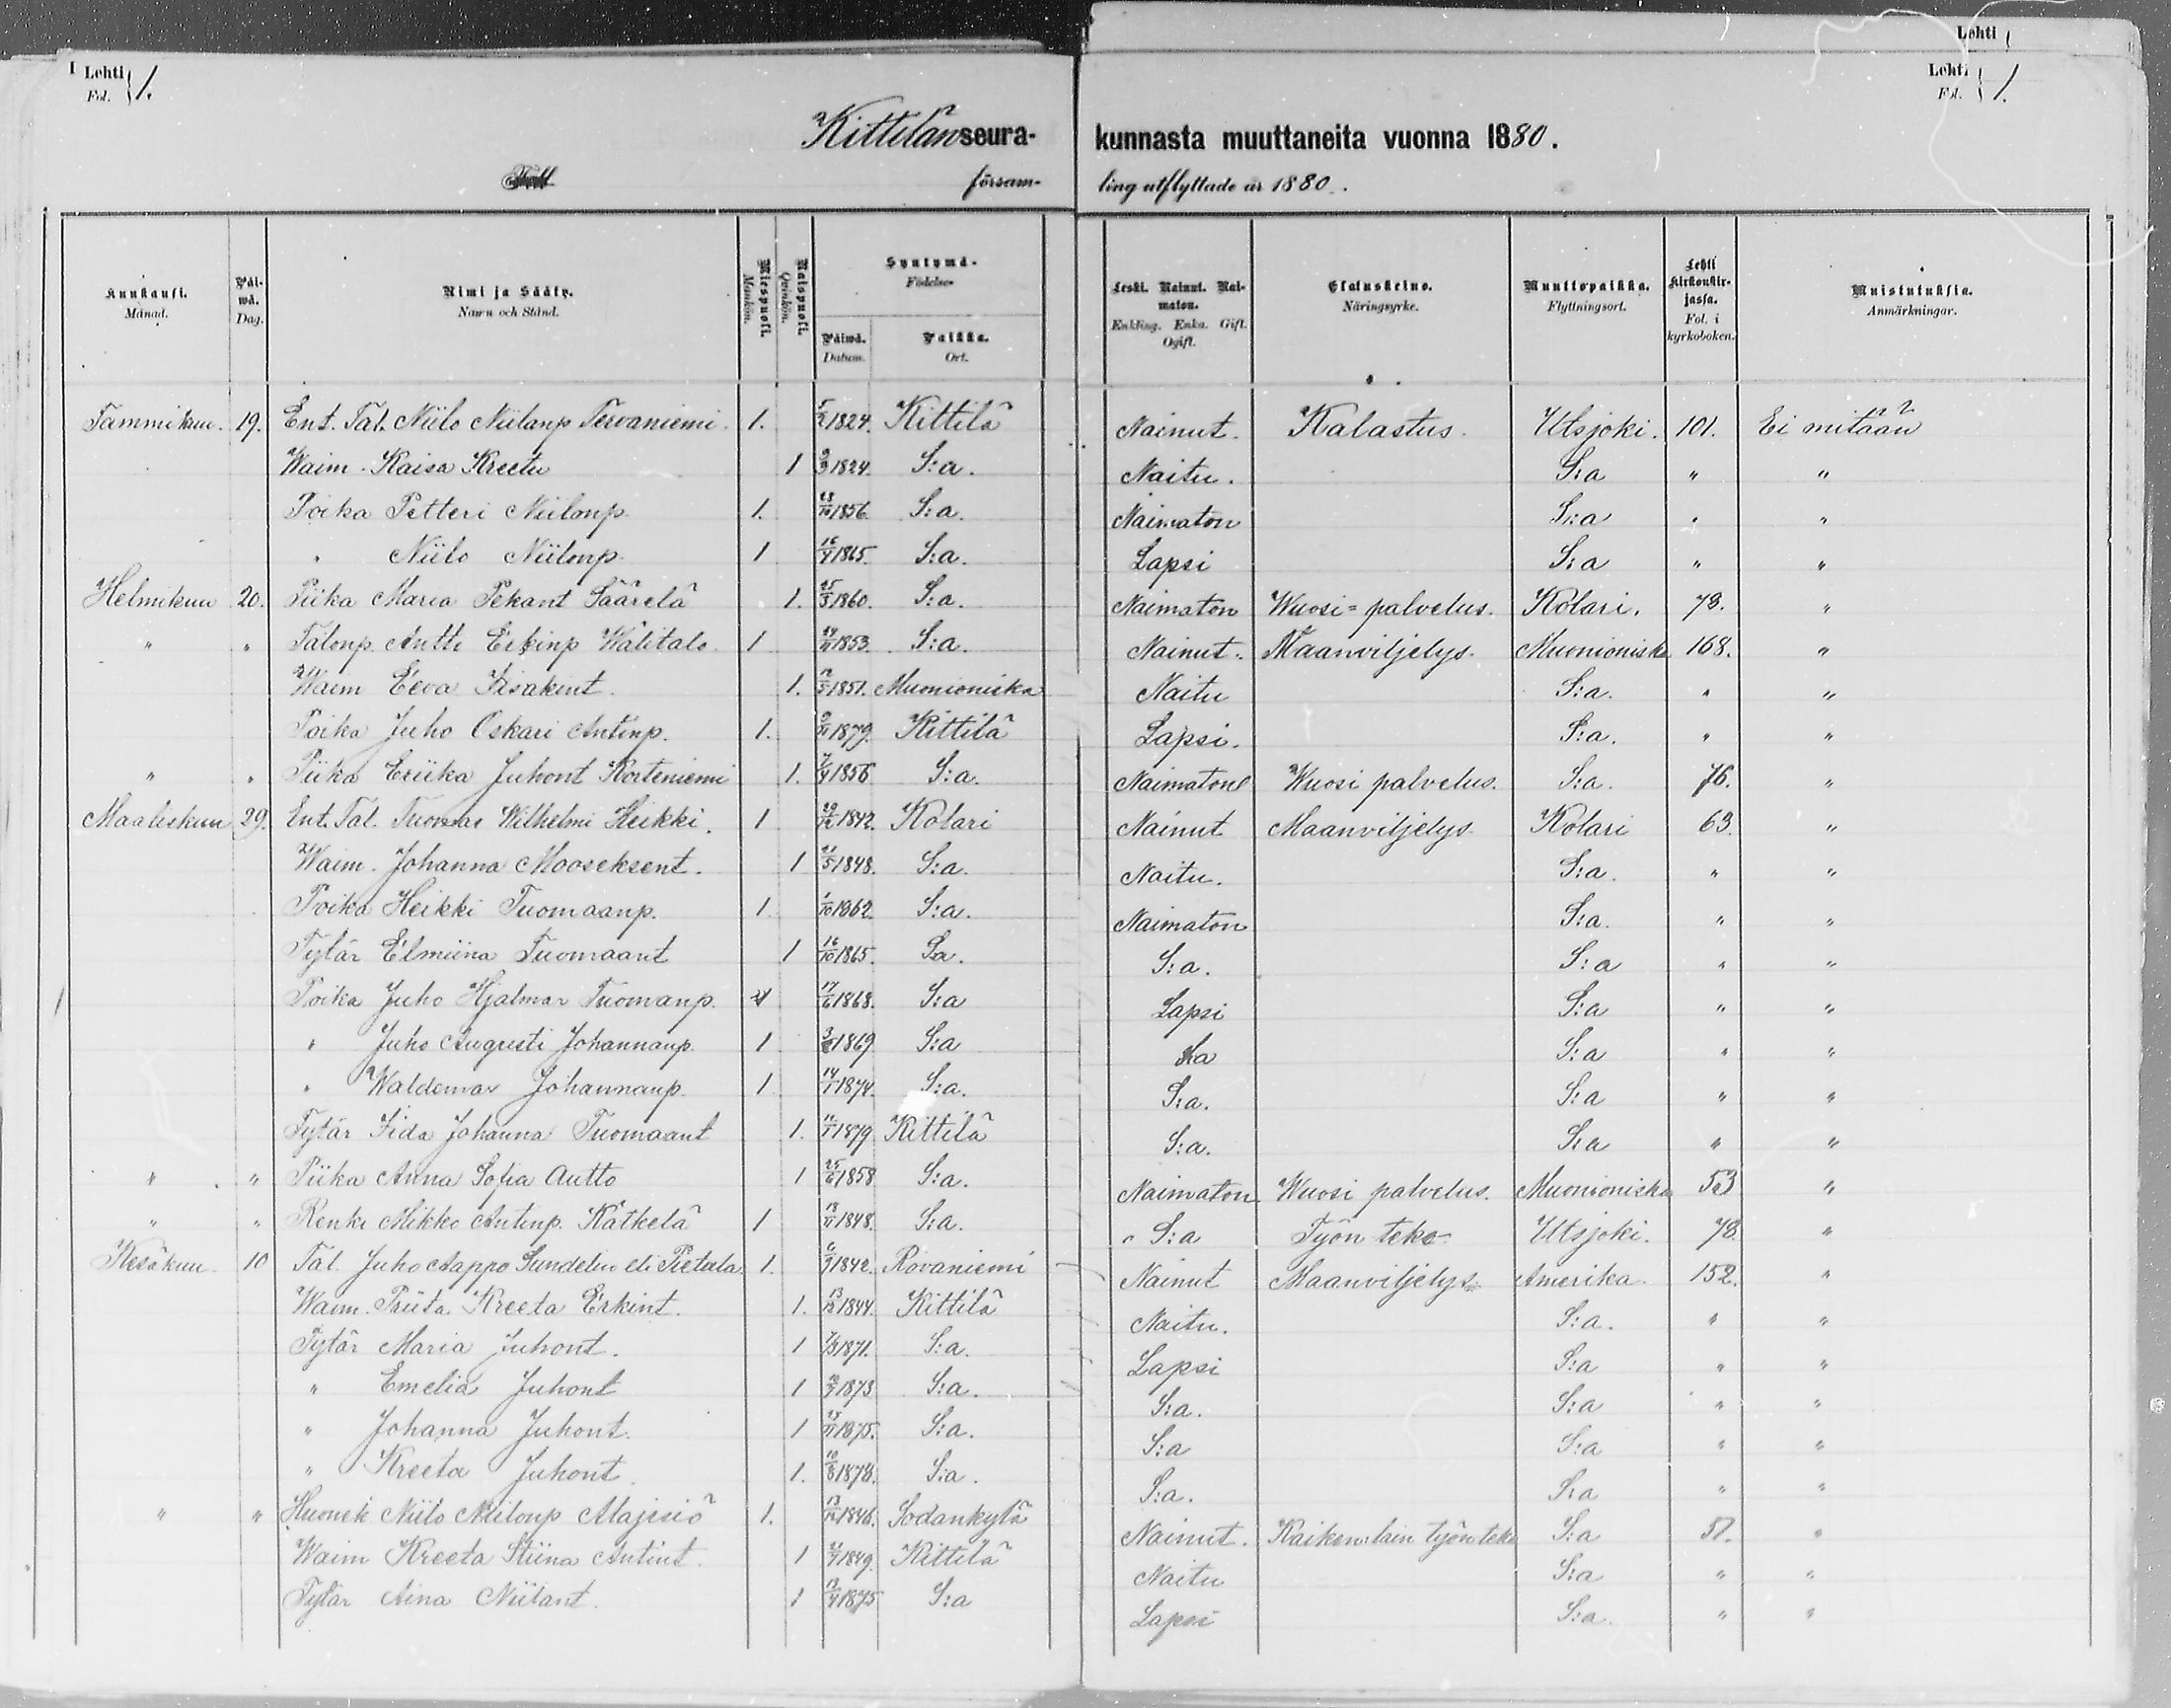 Lehti
Lehti 1.
Fol.
Lehti 1.
Fol.
Kittilän seura- kunnasta muuttaneita vuonna 1880.
försam- ling utflyttade år 1880.
Kuukausi. Månad. Päiwä. Dag. Nimi ja Sääty. Namn och Stånd. Miespuoli. Mankön. Naispuoli. Qvinkön. Syntymä- Födelse- Päiwä. Datum. Paikka. Ort. Leski. Nainut. Naimaton. Enkling. Enka. Gift. Ogift. Elatuskeino. Näringsyrke. Muuttopaikka. Flyttningsort. Lehti kirkonkirjassa. Fol. i kyrkoboken. Muistutuksia. Anmärkningar.
Tammikuu. 19. Ent. Tal. Niilo Niilanp Tervaniemi 1. 5/2 1824. Kittilä Nainut. Kalastus. Utsjoki. 101. Ei mitään
Waim. Kaisa Kreetu 1 9/9 1824. S:a. Naitu. S:a " "
Poika Petteri Niilonp. 1. 1856. S:a. Naimaton S:a " "
" Niilo Niilonp. 1 16/4 1865. S:a. Lapsi S:a " "
Helmikuu 20. Piika Maria Pekant Säärelä 1. 25/3 1860. S:a. Naimaton Wuosi=palvelus. Kolari. 78. "
" " Talonp. Antti Erkinp Wälitalo 1 1853. S:a. Nainut. Maanviljelys. Muonionisk 168. "
Waim Eeva Iisakint. 1. 12/5 1851. Muonioniska Naitu S:a. " "
Poika Juho Oskari Antinp. 1. 9/11 1879. Kittilä Lapsi. S:a. " "
" " Piika Eriika Juhont Korteniemi 1. 1856 S:a. Naimaton Wuosi palvelus. S:a. 76. "
Maaliskuu 29. Ent. Tal. Tuomas Wilhelmi Heikki. 1 29/12 1842. Kolari Nainut Maanviljelys Kolari 63. "
Waim. Johanna Mooseksent. 1 21/5 1848. S:a. Naitu. S:a. " "
Poika Heikki Tuomaanp. 1. 1/10 1862. S:a. Naimaton S:a. " "
Tytär Elmiina Tuomaant 1 16/10 1865. S:a. S:a. S:a " "
Poika Juho Hjalmar Tuomanp. 1 17/6 1868. S:a Lapsi S:a " "
" Juho Augusti Johannanp. 1 1869 S:a S:a S:a " "
" Waldemar Johannanp. 1 14/1 1874. S:a. S:a. S:a " "
Tytär Iida Johanna Tuomaant 1. 1879 Kittilä S:a. S:a " "
" " Piika Anna Sofia Autto 1 25/6 1858 S:a. Naimaton Wuosi palvelus. Muonioniska 53 "
" " Renki Mikko Antinp. Kätkelä 1 18/11 1848. S:a. S:a Työn teko Utsjoki. 78 "
Kesäkuu 10 Tal. Juho Aappo Sundelin eli Pietula 1. 6/9 1842. Rovaniemi Nainut Maanviljelys Amerika. 152. "
Waim. Priita Kreeta Erkint. 1. 13/12 1844. Kittilä Naitu. S:a. " "
Tytär Maria Juhont. 1 7/3 1871. S:a. Lapsi S:a " "
" Emelia Juhont 1 1873 S:a. S:a. S:a " "
" Johanna Juhont. 1 1875. S:a. S:a S:a " "
" Kreeta Juhont 1. 10/8 1878. S:a. S:a. S:a " "
" " Huonek Niilo Niilonp Alajesiö 1. 13/12 1846. Sodankylä Nainut. Kaiken:lain työn teko S:a 57. "
Waim Kreeta Stiina Antint. 1 1849. Kittilä Naitu S:a " "
Tytär Aina Niilant. 1 1875 S:a Lapsi S:a " "